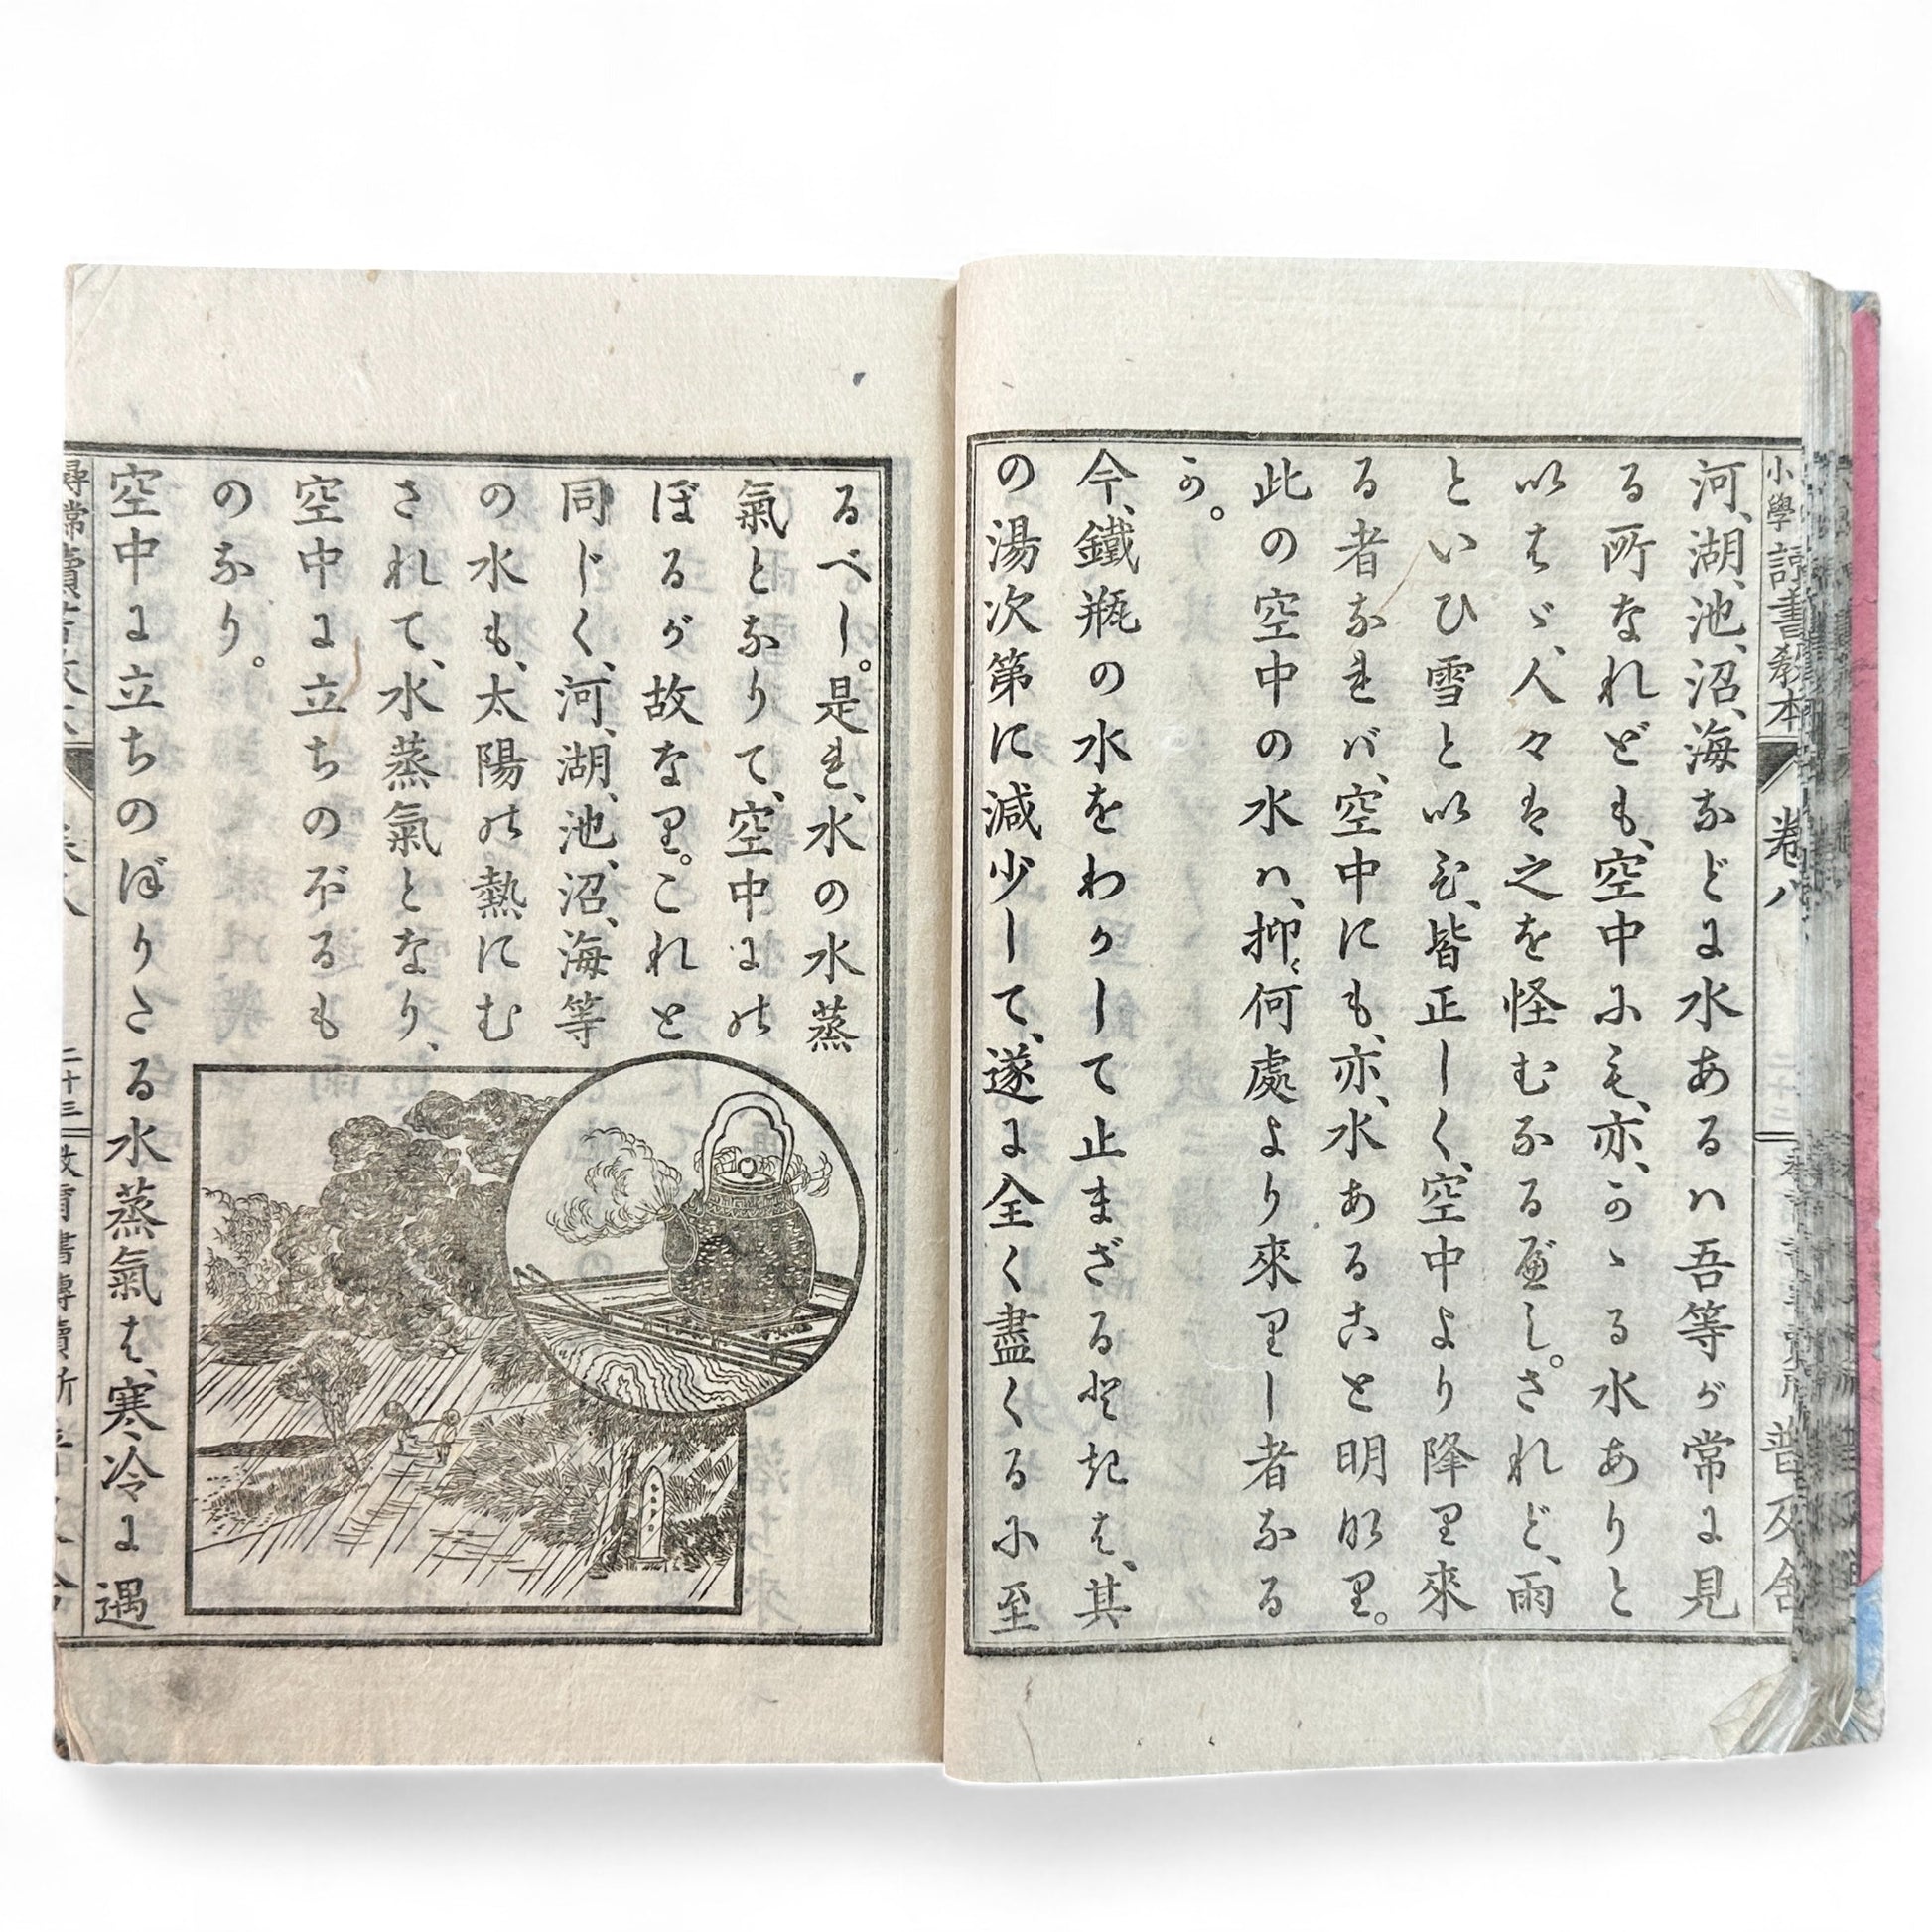 小學讀書教本
卷八
普及舍
河、湖、池、沼、海などに水あるハ吾等が常に見
る所なれども、空中にも、亦、かゝる水ありと
いはゞ、人々は之を怪むなるべし。されど、雨
といひ雪といひ、皆正しく、空中より降り來
る者なれバ、空中にも、亦、水あること明かなり。
此の空中の水ハ、抑〻何處より來りし者なる
か。
今、鐵瓶の水をわかして止まざるときは、其
の湯次第に減少して、遂に全く盡くるに至
るべし。是れ、水の水蒸
氣となりて、空中にの
ぼるが故なり。これと
同じく、河、湖、池、沼、海等
の水も、太陽の熱にむ
されて、水蒸氣となり、
空中に立ちのぼるも
のなり。
空中に立ちのぼりたる水蒸氣は、寒冷に遇
二十三